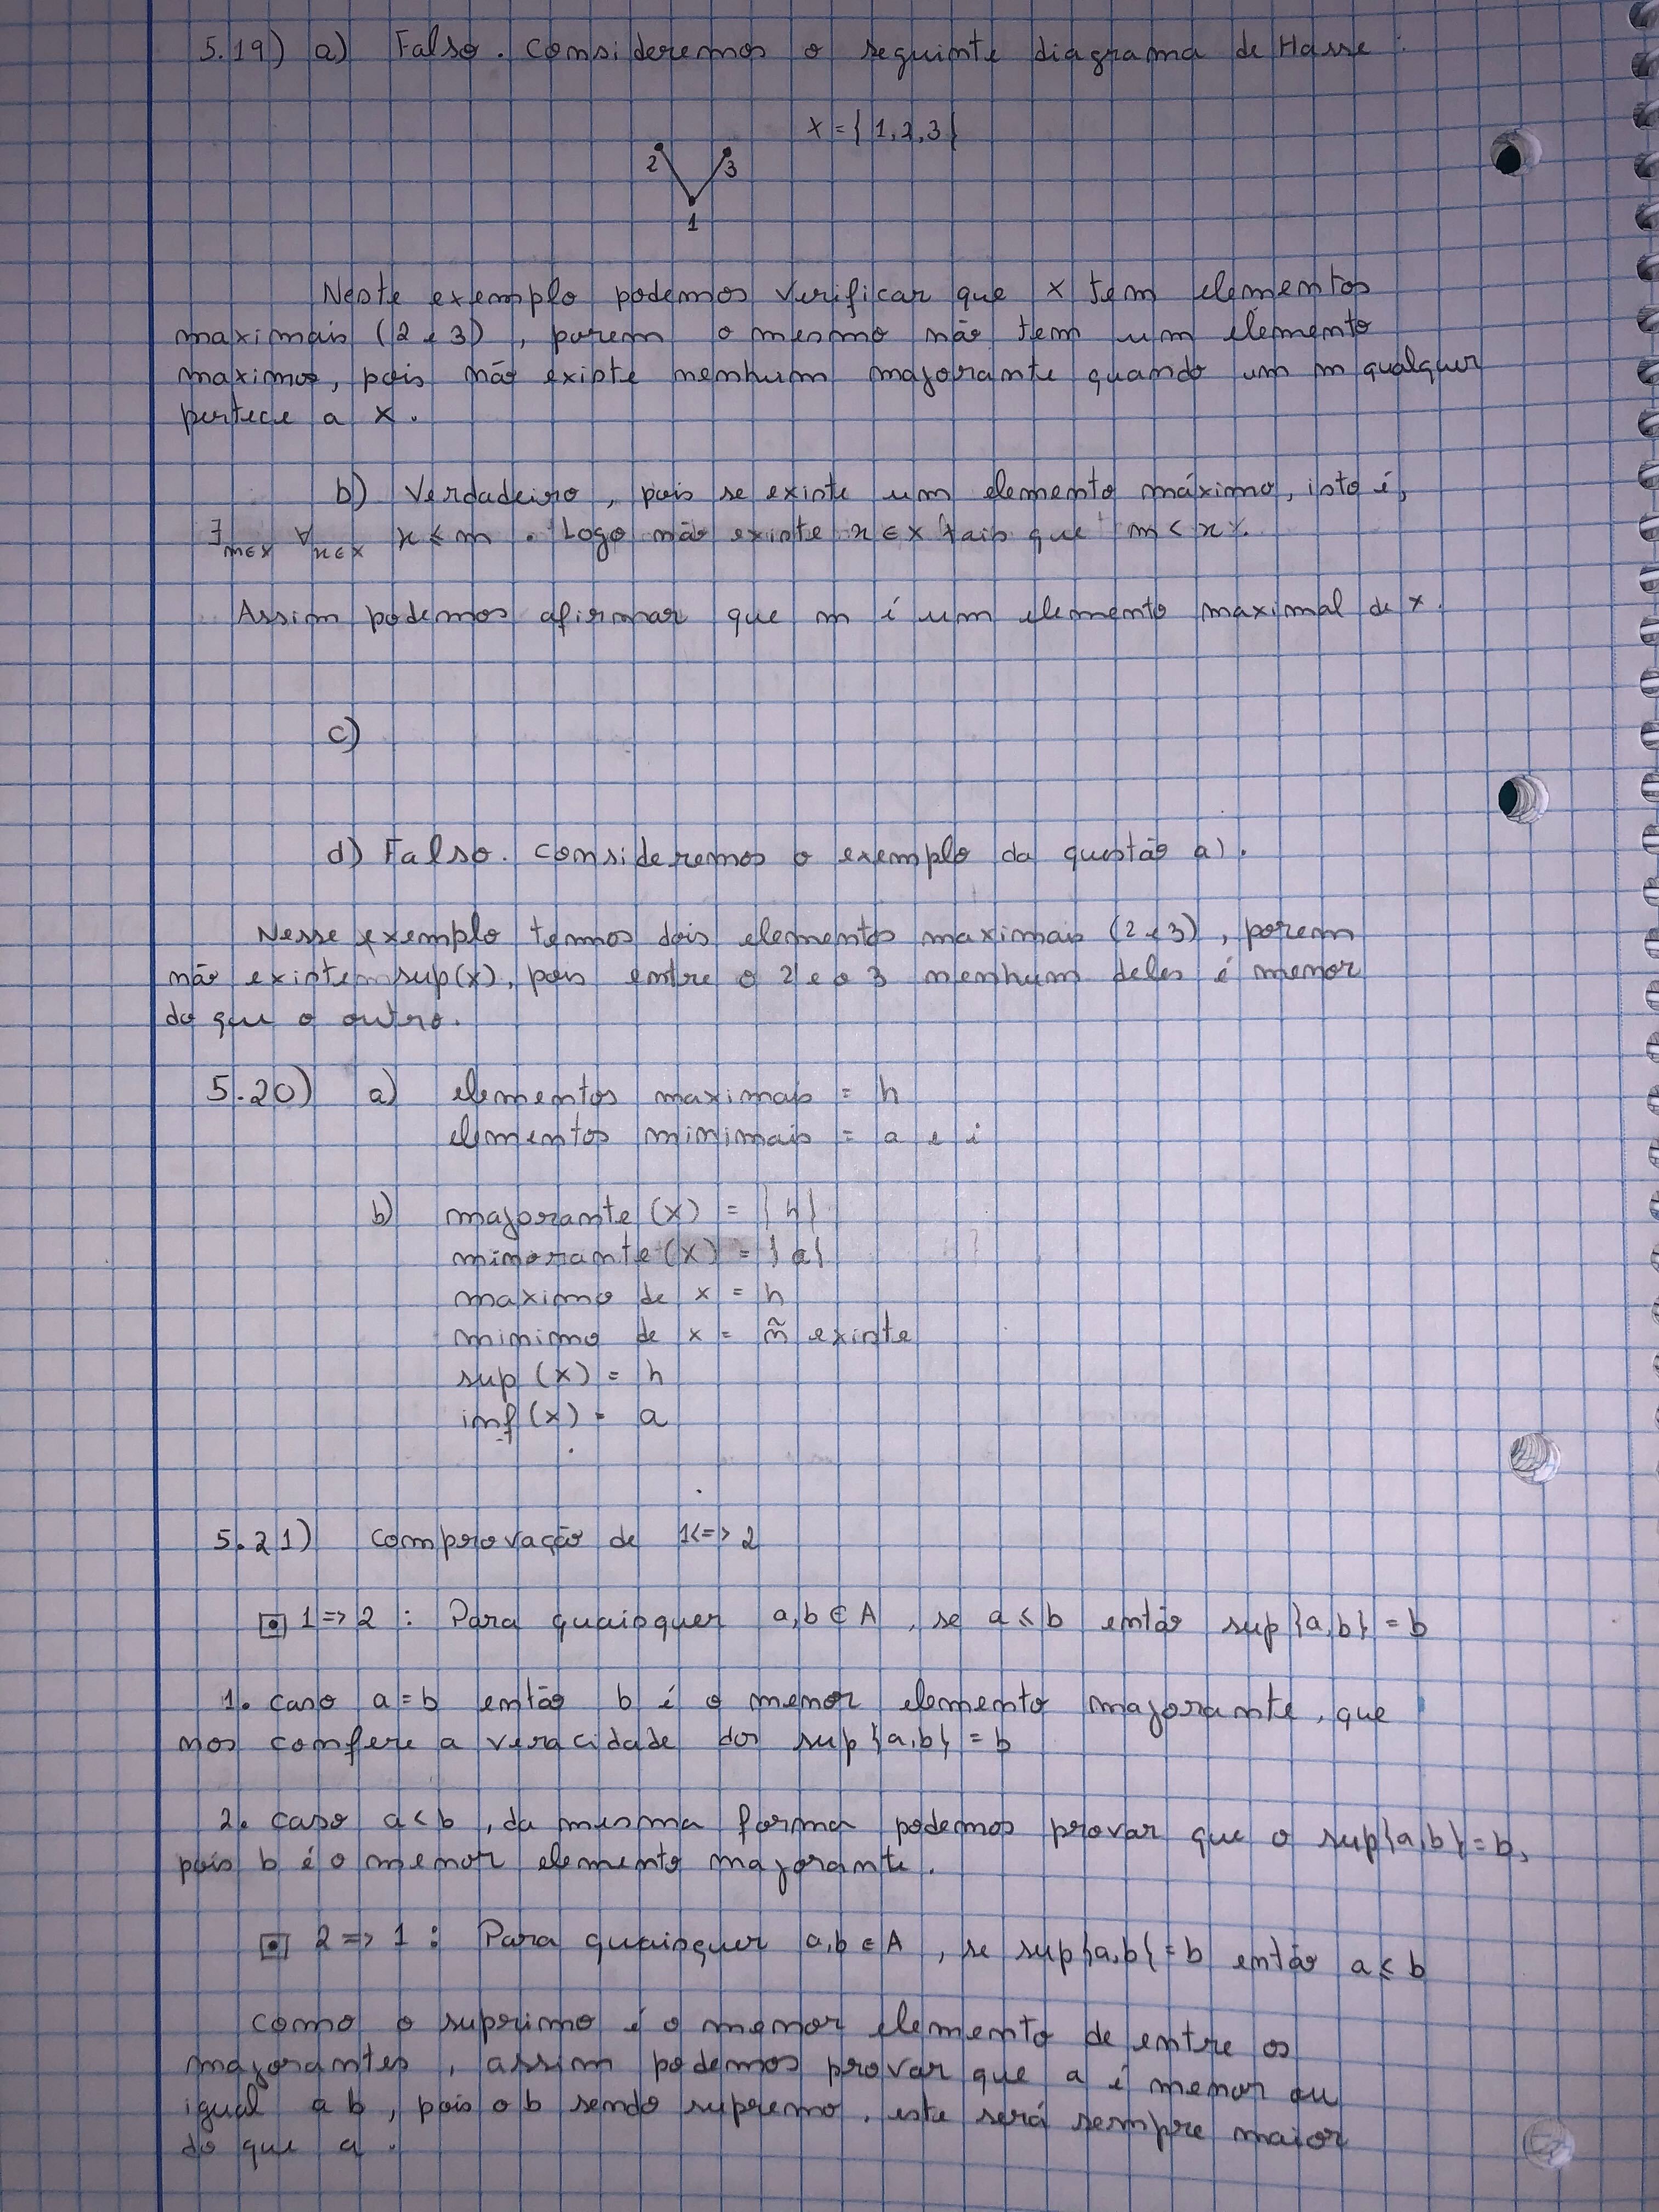 5.19) a) Falso. Consideremos o seguinte diagrama de Hasse:
X = {1,2,3}
2 3
1
Neste exemplo podemos verificar que X tem elementos
maximais (2 e 3), porem o mesmo não tem um elemento
maximo, pois não existe nenhum majorante quando um m qualquer
pertece a X.
b) Verdadeiro, pois se existe um elemento máximo, isto é,
∃m∈X ∀x∈X x ≤ m. Logo não existe x ∈ X tais que m < x.
Assim podemos afirmar que m é um elemento maximal de X.
c)
d) Falso. Consideremos o exemplo da questão a).
Nesse exemplo temos dois elementos maximais (2 e 3), porem
não existem sup(X), pois entre o 2 e o 3 nenhum deles é menor
do que o outro.
5.20) a) elementos maximais = h
elementos minimais = a e i
b) majorante (X) = {h}
minorante (X) = {a}
maximo de X = h
minimo de X = ñ existe
sup (X) = h
inf (X) = a
5.21) Comprovação de 1<=>2
1 => 2 : Para quaisquer a,b ∈ A, se a ≤ b então sup{a,b} = b
1. caso a = b então b é o menor elemento majorante, que
nos confere a veracidade dos sup{a,b} = b
2. caso a < b, da mesma forma podemos provar que o sup{a,b} = b,
pois b é o menor elemento majorante.
2 => 1 : Para quaisquer a,b ∈ A, se sup{a,b} = b então a ≤ b
Como o suprimo é o menor elemento de entre os
majorantes, assim podemos provar que a é menor ou
igual a b, pois o b sendo supremo, este será sempre maior
do que a.